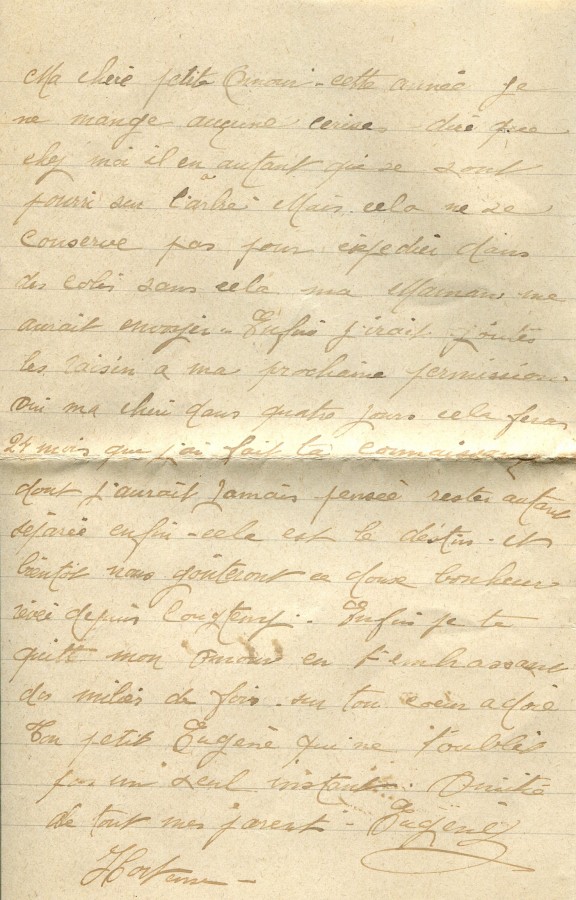 Ma cheré petite Amour - cette anneé je
ne mange aucune cerises - diré que
chez moi il en a autant que se sont
pourri sur l'arbre Mais cela ne se
conserve pas pour expedier dans
des colis sans cela ma Maman me
aurait envoyer - Enfin j'irait goutés
les raisin a ma prochaine permission
oui ma cheri dans quatre jours cela feras
24 mois que j'ai fait ta connaissance
dont j'aurait Jamais penseé rester autant
séparée enfin - cela est le déstin - et
bientot nous goûteront ce doux bonheur
révé depuis longtemps - Enfin je te
quitt mon Amour en t'embrassant
des miliés de fois sur ton coeur adoré
Ton petit Eugéne qui ne t'oublie
pas un seul instant - Amitié
de tout mes parent - Eugéne
Hortense -